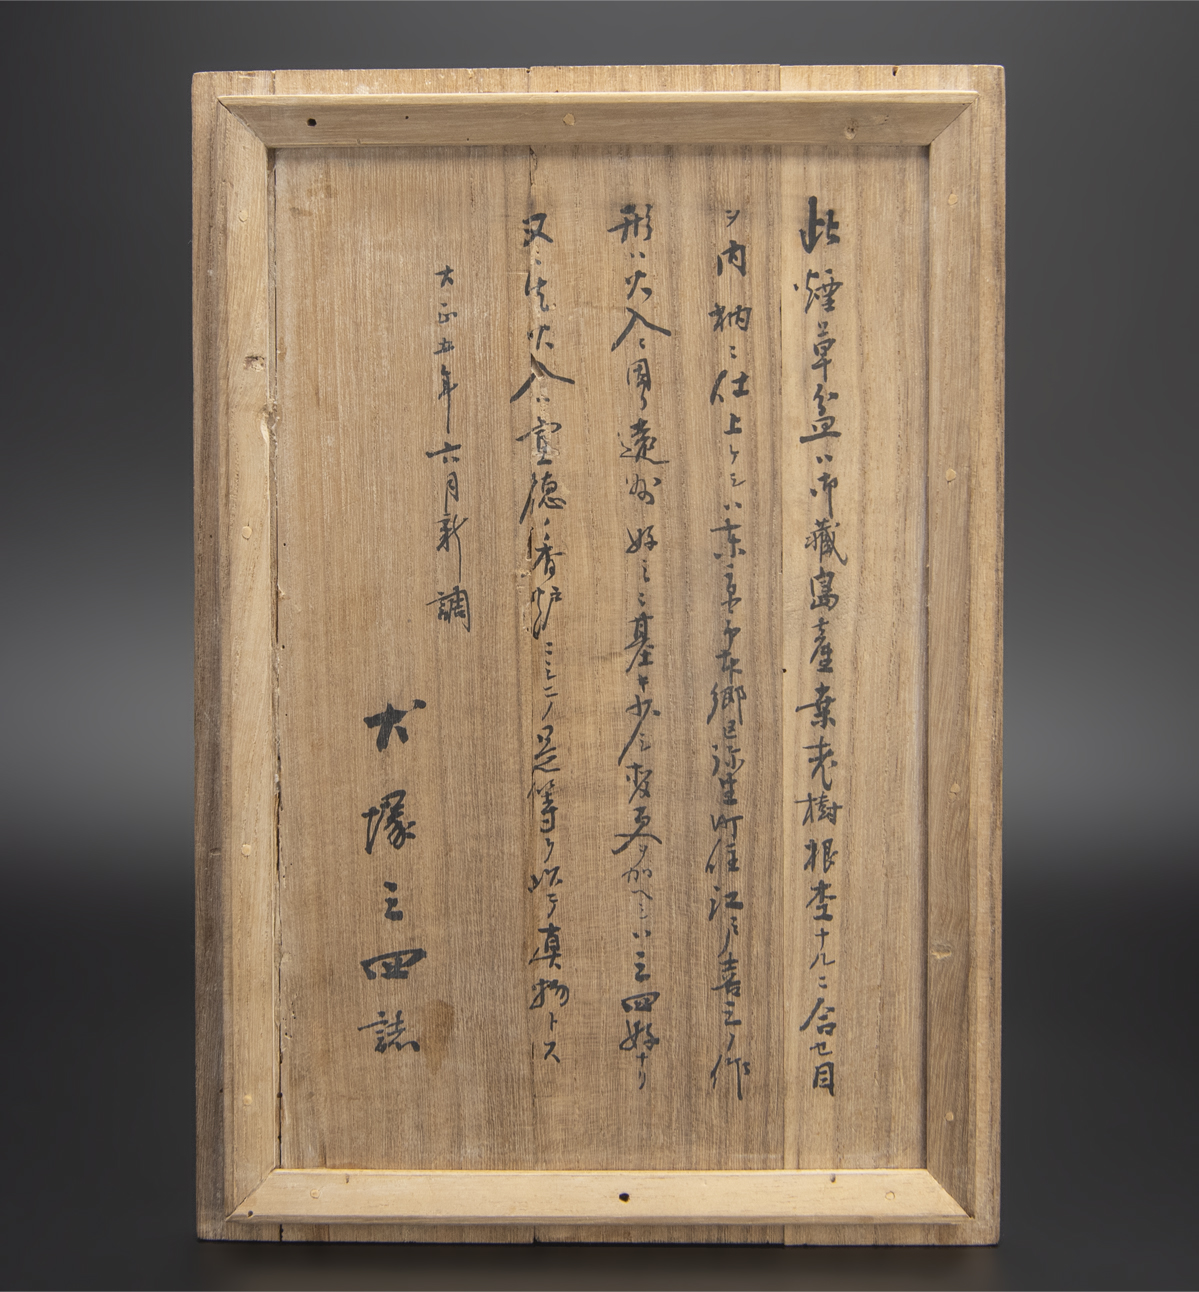 此煙草盆ハ御藏島産桑老樹根杢ナルニ合セ目
ヲ内枘ニ仕上ケシハ東京市本郷区弥生町住江戸喜三ノ作
形ハ火入ニ因リ遠州好ミニ基キ少シ変更ヲ加ヘシハ三四好ナリ
又ニ火入ハ宣徳ノ香炉ニシテ足等ヲ以テ真物トス
大正五年六月新調
大塚三四誌